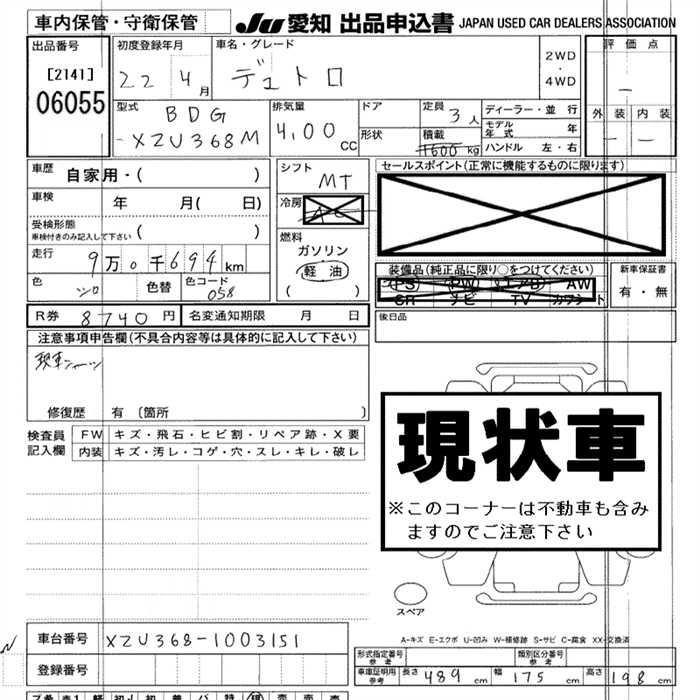 車内保管・守衛保管 JU 愛知 出品申込書 JAPAN USED CAR DEALERS ASSOCIATION
出品番号 初度登録年月 車名・グレード 2WD・4WD 評価点
[2141] 22 4月 デュトロ —
06055 外装 内装
— —
型式 BDG 排気量 ドア 定員 3人 ディーラー・並行
-XZU368M 4.00 CC 形状 積載 kg モデル年式 年
ハンドル 左・右
車歴 自家用・( ) シフト MT セールスポイント(正常に機能するものに限ります)
車検 年 月( 日) 冷房
受検形態 ( )
車検付きのみ記入して下さい
燃料 ガソリン
軽油
( )
走行 9万0千694km
色 シロ 色替 色コード 058
装備品(純正品に限り○をつけてください) 新車保証書
PS PW エアB AW 有・無
SR ナビ TV カワシート
R券 8740円 名変通知期限 月 日 後日品
注意事項申告欄(不具合内容等は具体的に記入して下さい)
修復歴 有〔箇所 〕
検査員記入欄 FW キズ・飛石・ヒビ割・リペア跡・X要
内装 キズ・汚レ・コゲ・穴・スレ・キレ・破レ
現状車
※このコーナーは不動車も含み
ますのでご注意下さい
スペア
A-キズ E-エクボ U-凹み W-補修跡 S-サビ C-腐食 XX-交換済
車台番号 XZU368-1003151
登録番号
形式指定番号 参考 類別区分番号 参考
車庫証明用 参考 長さ 489 cm 幅 175 cm 高さ 198 cm